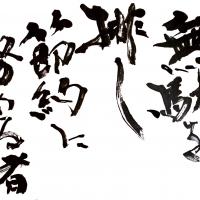 無駄を
排し
節約に
努める者